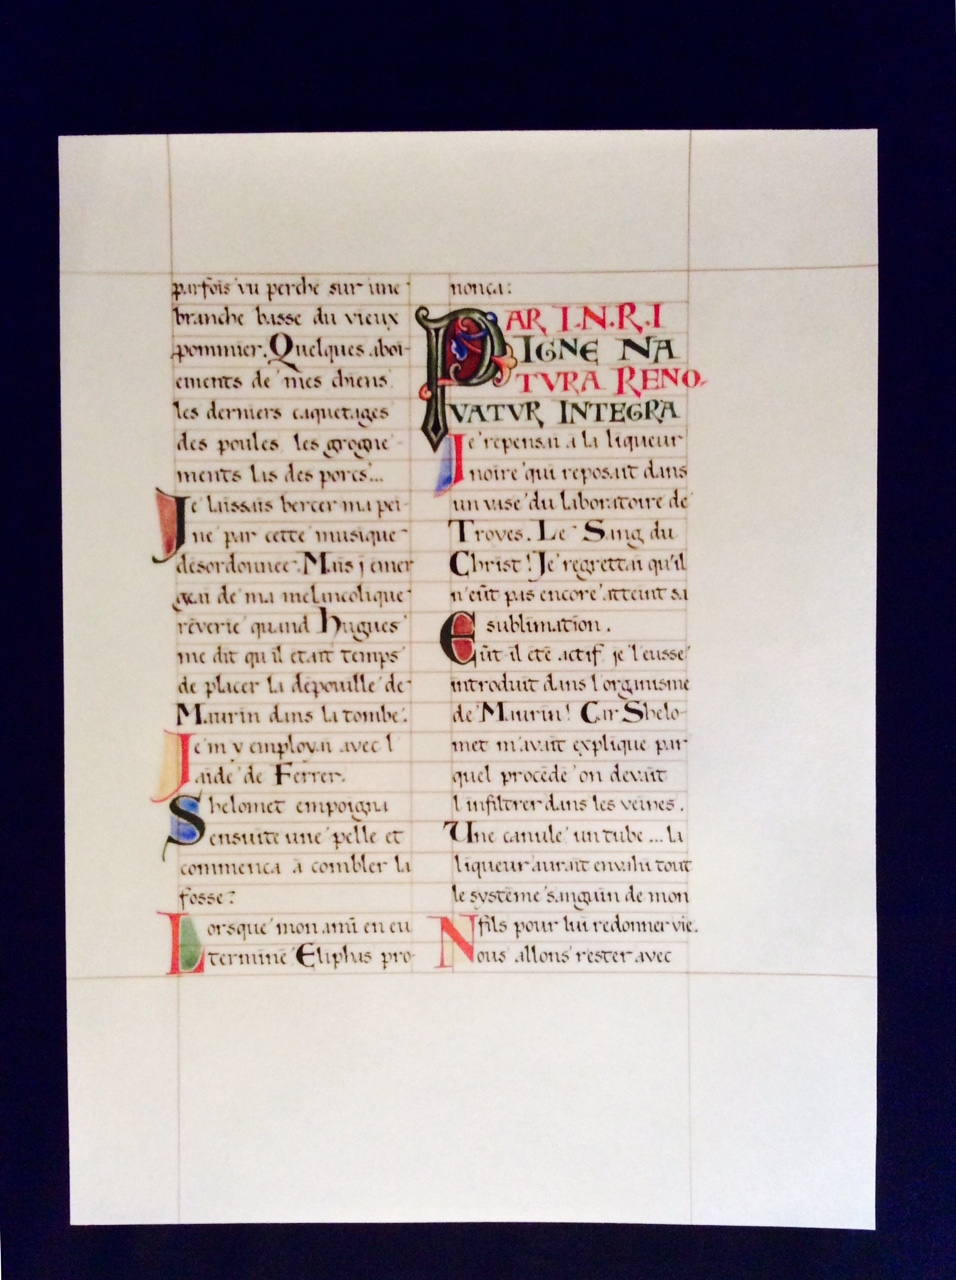 parfois vu perché sur une
branche basse du vieux
pommier. Quelques aboi-
ements de mes chiens
les derniers caquetages
des poules les grogne-
ments las des porcs...
Je laissais bercer ma pei-
ne par cette musique
désordonnée. Mais j émer
geai de ma mélancolique
rêverie quand Hugues
me dit qu il était temps
de placer la dépouille de
Maurin dans la tombe.
Je m y employai avec l
aide de Ferrer.
Shelomet empoigna
ensuite une pelle et
commença à combler la
fosse.
Lorsque mon ami en eu
terminé Eliphas pro-
nonça:
PAR I.N.R.I
IGNE NA
TVRA RENO-
VATVR INTEGRA
Je repensai à la liqueur
noire qui reposait dans
un vase du laboratoire de
Troyes. Le Sang du
Christ! Je regrettai qu'il
n'eût pas encore atteint sa
sublimation.
Eût il été actif je l eusse
introduit dans l organisme
de Maurin! Car Shelo-
met m'avait expliqué par
quel procédé on devait
l infiltrer dans les veines.
Une canule un tube... la
liqueur aurait envahi tout
le système sanguin de mon
fils pour lui redonner vie.
Nous allons rester avec